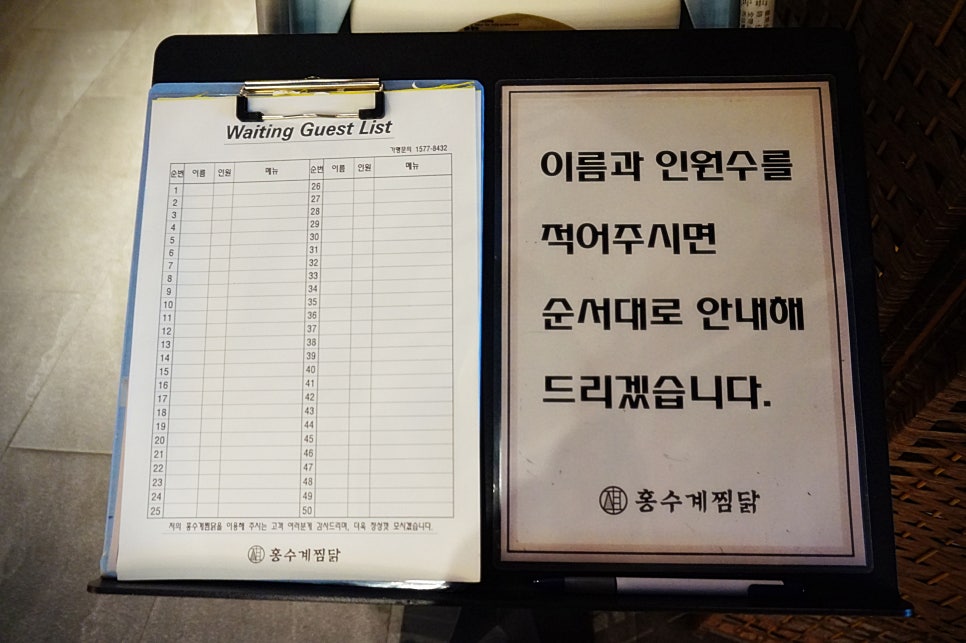 Waiting Guest List
가맹문의 1577-8432
순번 이름 인원 메뉴 순번 이름 인원 메뉴
1 26
2 27
3 28
4 29
5 30
6 31
7 32
8 33
9 34
10 35
11 36
12 37
13 38
14 39
15 40
16 41
17 42
18 43
19 44
20 45
21 46
22 47
23 48
24 49
25 50
저희 홍수계찜닭을 이용해 주시는 고객 여러분께 감사드리며, 더욱 정성껏 모시겠습니다.
홍수계찜닭
이름과 인원수를
적어주시면
순서대로 안내해
드리겠습니다.
홍수계찜닭